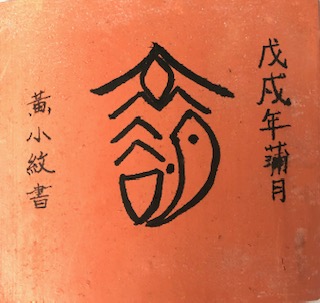 戊戌年蒲月
黃小紋書